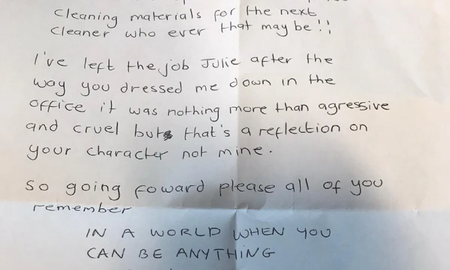 cleaning materials for the next
cleaner who ever that may be!!
I've left the job Julie after the
way you dressed me down in the
office it was nothing more than agressive
and cruel but that's a reflection on
your character not mine.
So going foward please all of you
remember
IN A WORLD WHEN YOU
CAN BE ANYTHING